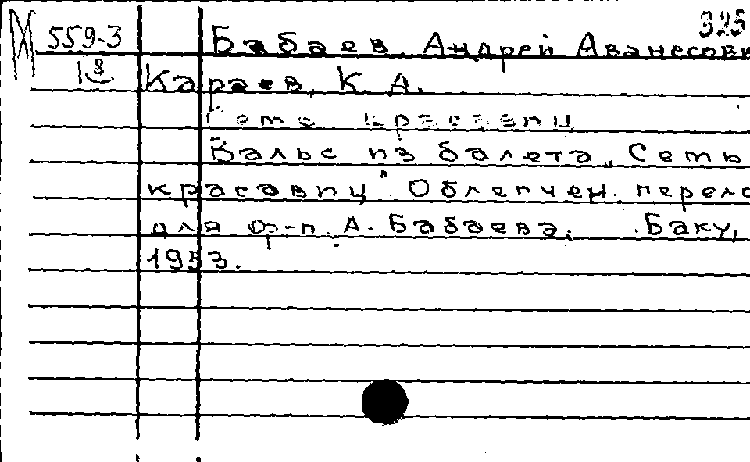 325
М 559-3 Бабаев, Андрей Аванесови
18 Караев, К. А.
Семь красавиц
Вальс из балета „Семь
красавиц" Облегчен. перело
для ф-п. А. Бабаева. Баку,
1953.